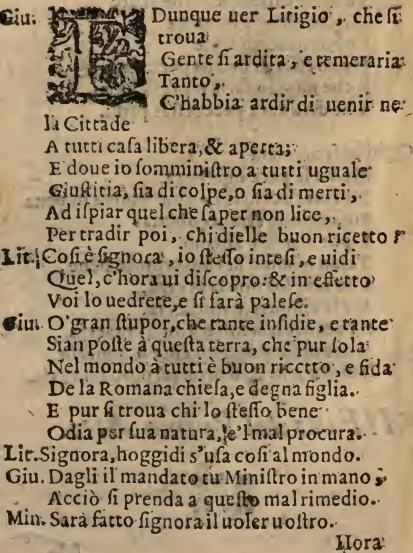 Giu. E Dunque uer Litigio, che ſi
troua
Gente ſi ardita, e temeraria
Tanto,
C'habbia ardir di uenir ne
la Cittade
A tutti caſa libera, & aperta;
E doue io ſomminiſtro a tutti uguale
Giuſtitia, ſia di colpe, o ſia di merti,
Ad iſpiar quel che ſaper non lice,
Per tradir poi, chi dielle buon ricetto?
Lit. Coſi è ſignora, io ſteſſo inteſi, e uidi
Quel, c'hora ui diſcopro: & in effetto
Voi lo uedrete, e ſi farà paleſe.
Giu. O' gran ſtupor, che tante inſidie, e tante
Sian poſte à queſta terra, che pur ſola
Nel mondo à tutti è buon ricetto, e fida
De la Romana chieſa, e degna figlia.
E pur ſi troua chi lo ſteſſo bene
Odia per ſua natura, e'l mal procura.
Lit. Signora, hoggidi s'uſa coſi al mondo.
Giu. Dagli il mandato tu Miniſtro in mano;
Acciò ſi prenda a queſto mal rimedio.
Min. Sarà fatto ſignora il uoler uoſtro.
Hora